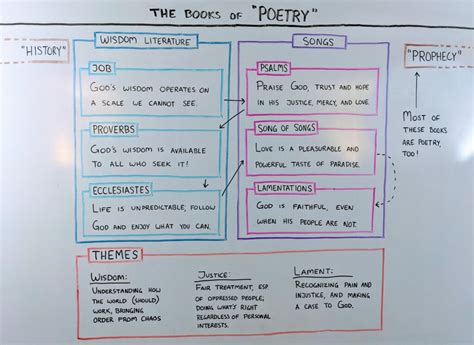 THE BOOKS OF "POETRY"
"HISTORY"
WISDOM LITERATURE
JOB
GOD'S WISDOM OPERATES ON
A SCALE WE CANNOT SEE.
PROVERBS
GOD'S WISDOM IS AVAILABLE
TO ALL WHO SEEK IT!
ECCLESIASTES
LIFE IS UNPREDICTABLE, FOLLOW
GOD AND ENJOY WHAT YOU CAN.
SONGS
PSALMS
PRAISE GOD, TRUST AND HOPE
IN HIS JUSTICE, MERCY, AND LOVE.
SONG OF SONGS
LOVE IS A PLEASURABLE AND
POWERFUL TASTE OF PARADISE.
LAMENTATIONS
GOD IS FAITHFUL, EVEN
WHEN HIS PEOPLE ARE NOT.
"PROPHECY"
MOST OF
THESE BOOKS
ARE POETRY,
TOO!
THEMES
WISDOM:
UNDERSTANDING HOW
THE WORLD (SHOULD)
WORK, BRINGING
ORDER FROM CHAOS
JUSTICE:
FAIR TREATMENT, ESP.
OF OPPRESSED PEOPLE;
DOING WHAT'S RIGHT
REGARDLESS OF PERSONAL
INTERESTS.
LAMENT:
RECOGNIZING PAIN AND
INJUSTICE, AND MAKING
A CASE TO GOD.